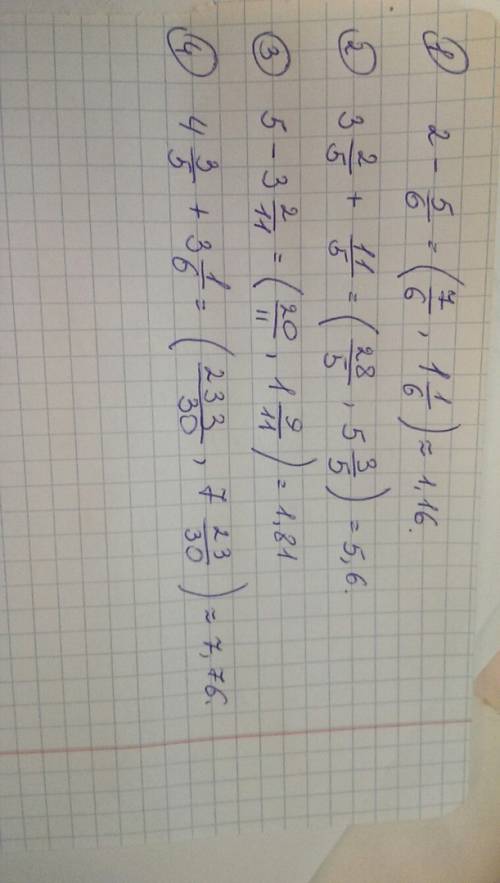 ① 2 - 5/6 = (7/6, 1 1/6) ≈ 1,16.
② 3 2/5 + 11/5 = (28/5, 5 3/5) = 5,6.
③ 5 - 3 2/11 = (20/11, 1 9/11) = 1,81
④ 4 3/5 + 3 1/6 = (233/30, 7 23/30) ≈ 7,76.